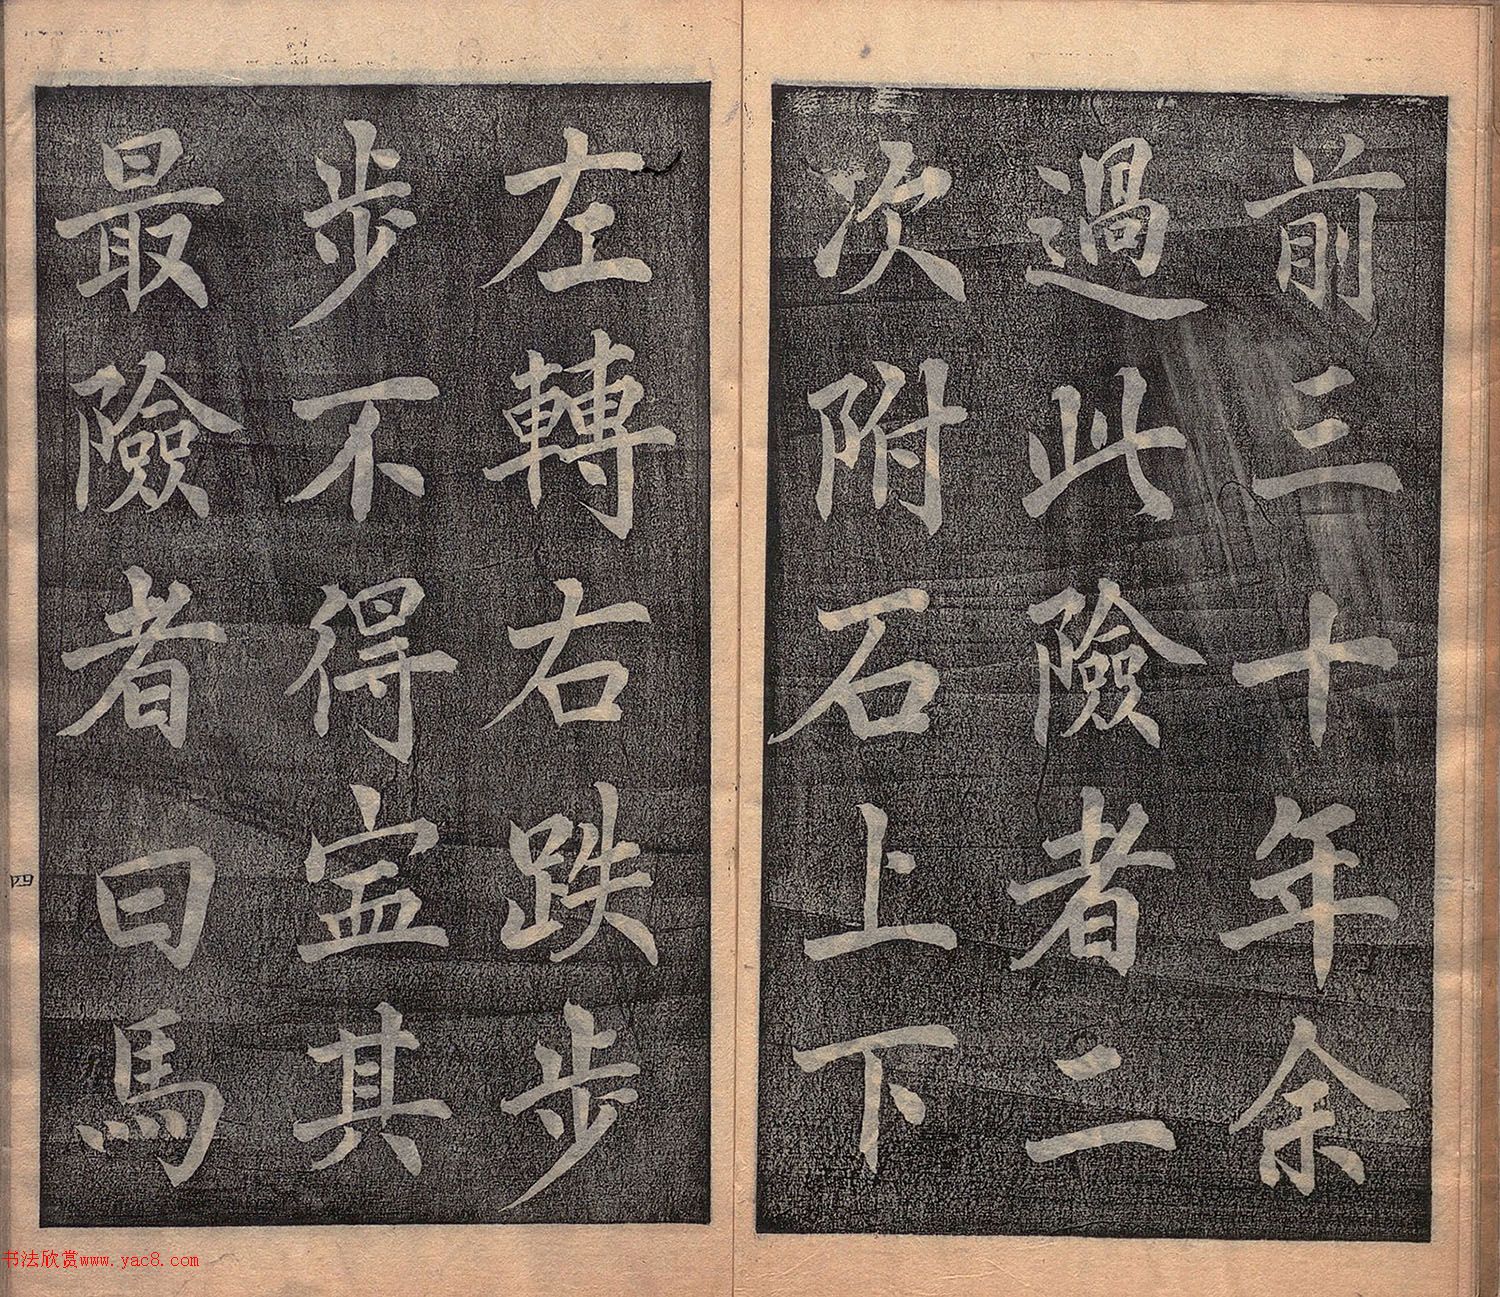 前三十年余
過此險者二
次附石上下
左轉右跌步
步不得寍其
最險者曰馬
四
书法欣赏www.yac8.com